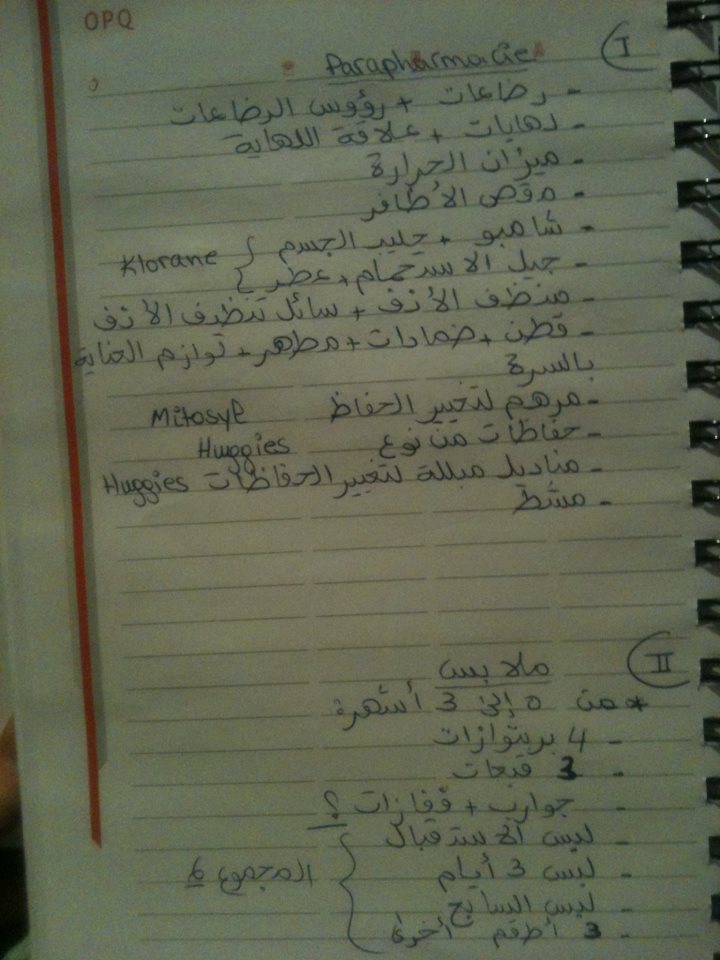 OPQ
I Parapharmacie
- رضاعات + رؤوس الرضاعات
- لهايات + علاقة اللهاية
- ميزان الحرارة
- مقص الأظافر
- شامبو + حليب الجسم } Klorane
- جيل الاستحمام + عطر }
- منظف الأنف + سائل تنظيف الأنف
- قطن + ضمادات + مطهر + لوازم العناية
بالسرة
- مرهم لتغيير الحفاظ Mitosyl
- حفاظات من نوع Huggies
- مناديل مبللة لتغيير الحفاظات Huggies
- مشط
II ملابس
* من 0 إلى 3 أشهرة
- 4 بريتوازات
- 3 قبعات
- جوارب + قفازات ؟
- لبس الاستقبال
- لبس 3 أيام
- لبس السابع
- 3 أطقم أخرى
المجموع 6